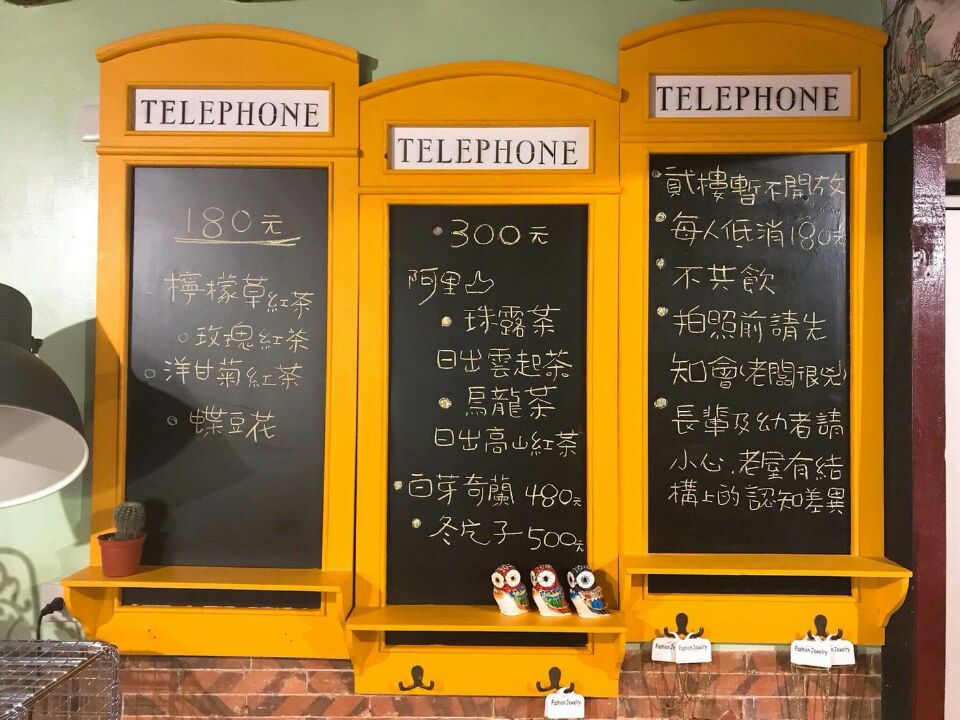 TELEPHONE
180元
檸檬草紅茶
玫瑰紅茶
洋甘菊紅茶
蝶豆花
TELEPHONE
300元
阿里山
珠露茶
日出雲起茶
烏龍茶
日出高山紅茶
白芽奇蘭 480元
冬片子 500元
TELEPHONE
貳樓暫不開放
每人低消180元
不共飲
拍照前請先
知會(老闆很兇)
長輩及幼者請
小心,老屋有結
構上的認知差異
Fashion Jewelry
Fashion Jewelry
Fashion Jewelry